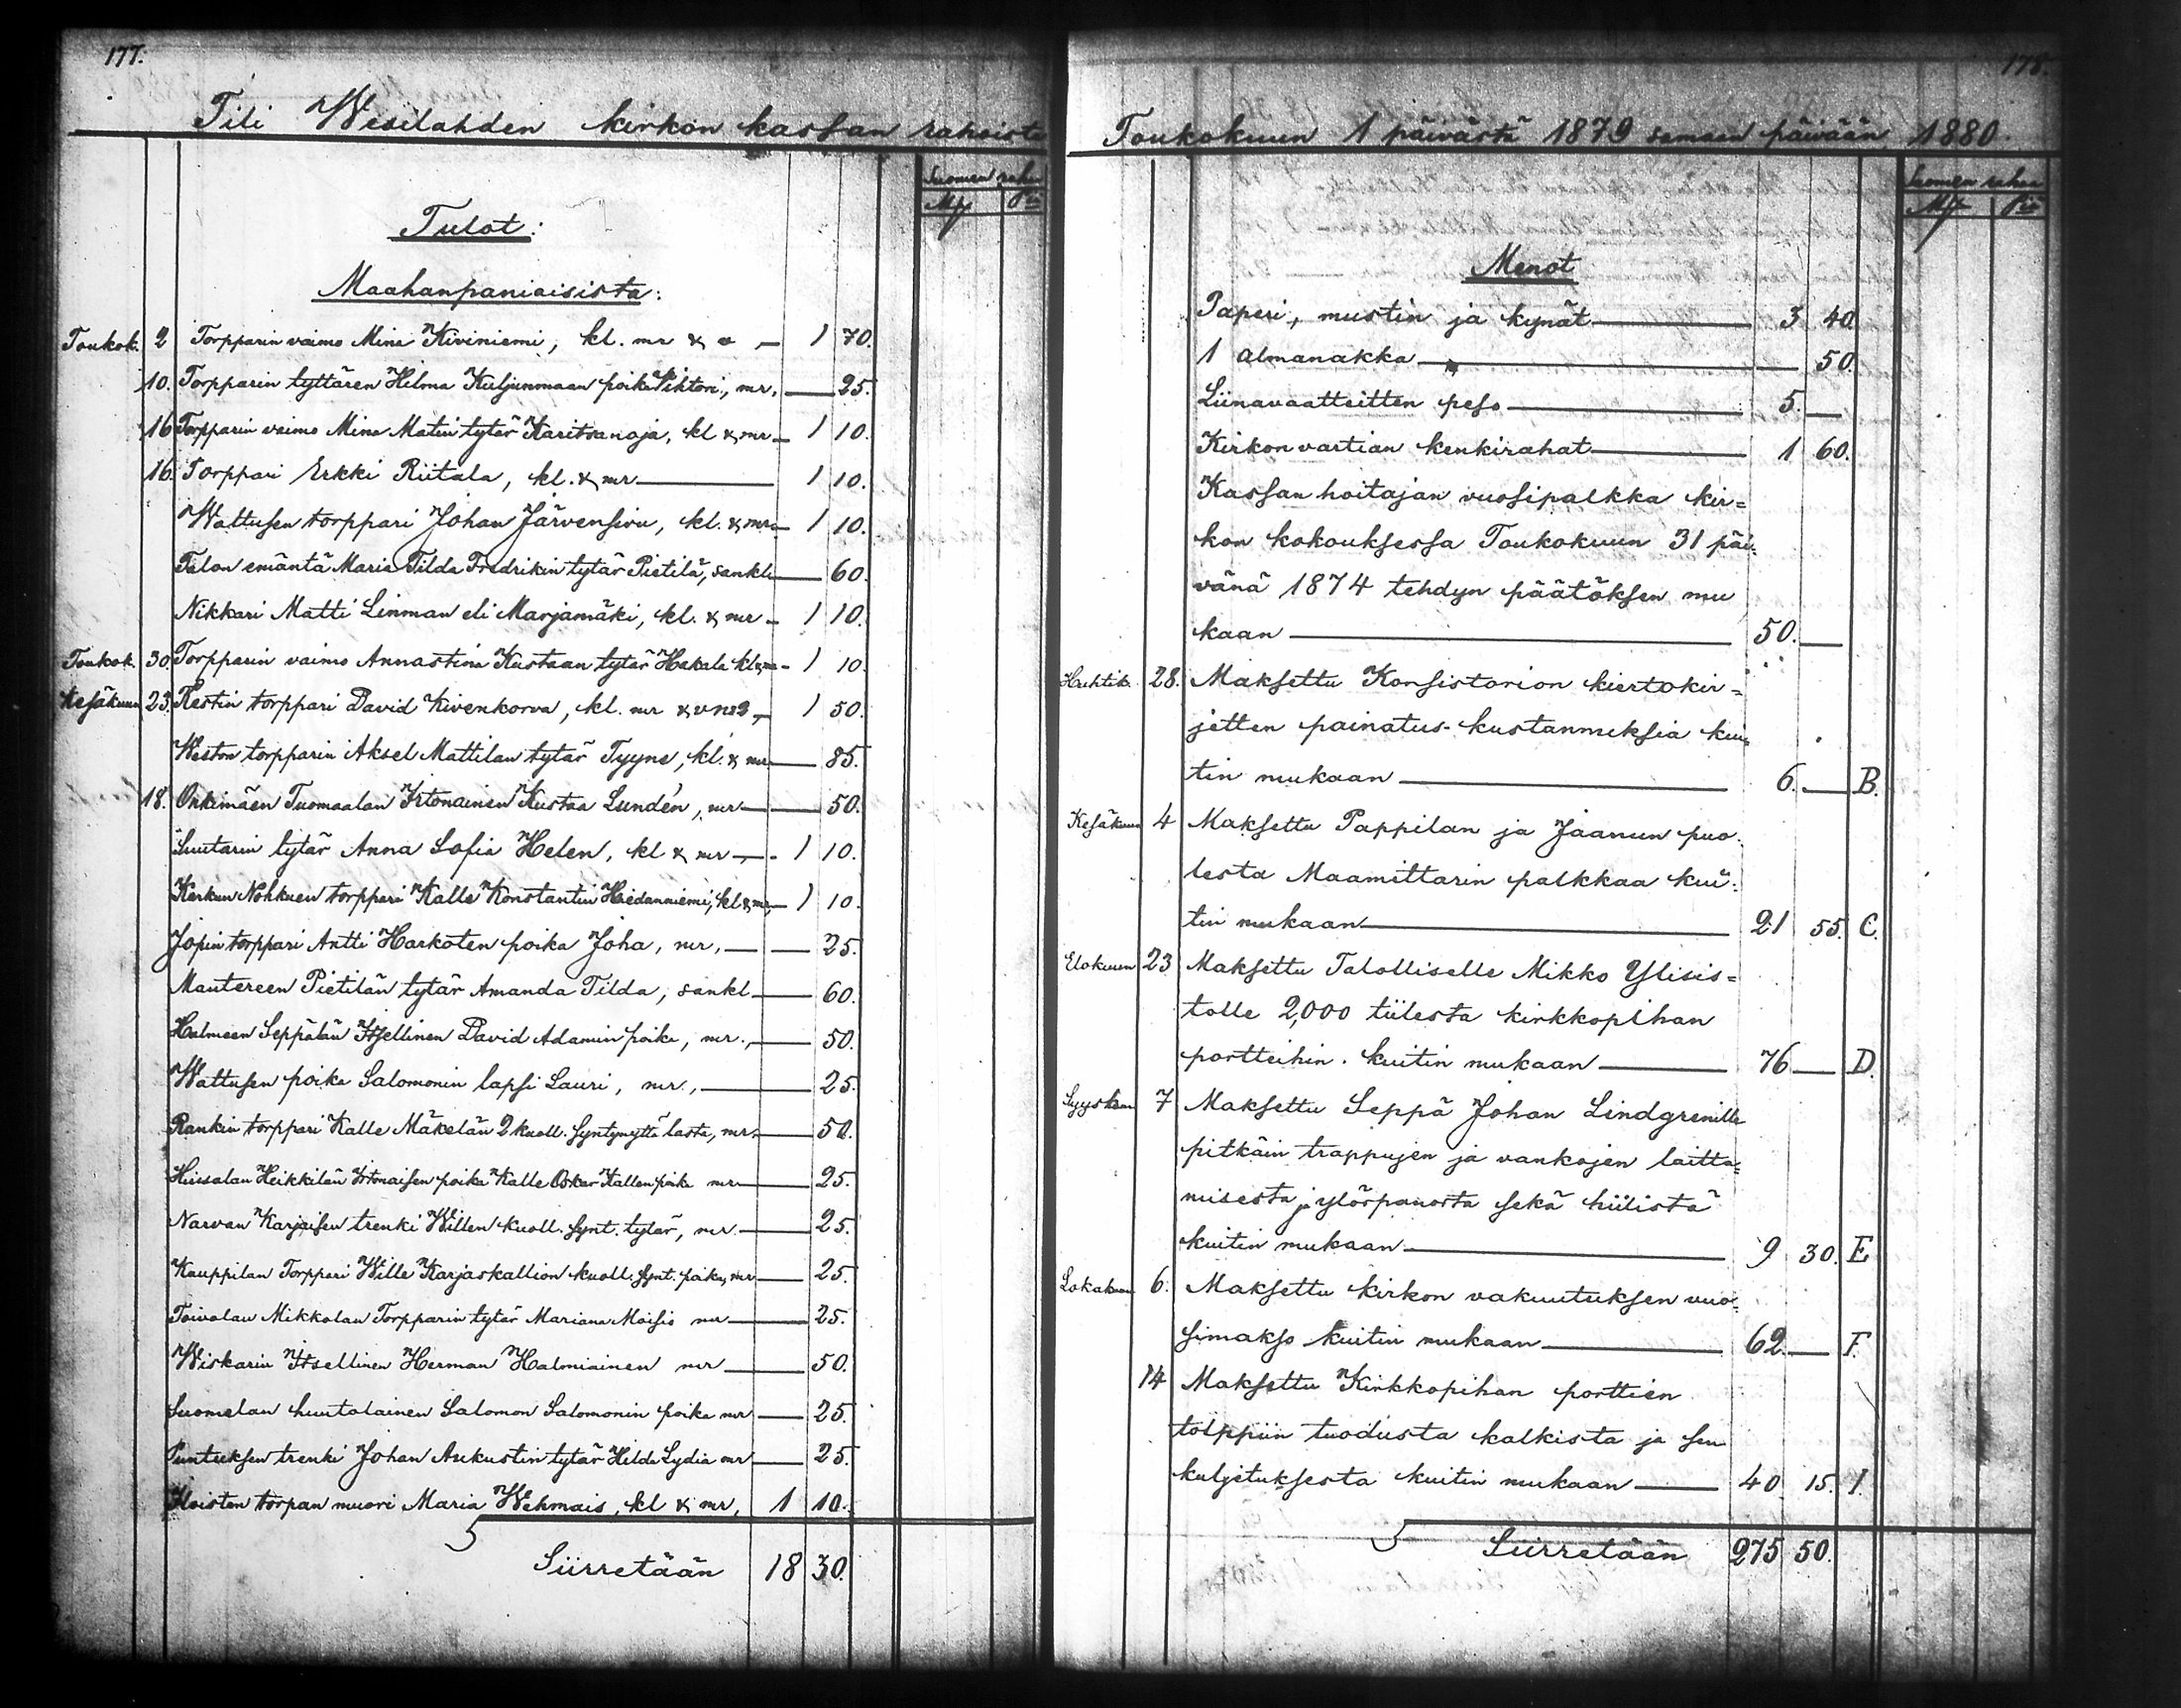 177.
Tili Wesilahden kirkon kassan rahoista
Suomen raha
Mk Pi
Tulot:
Maahanpaniaisista:
Toukok. 2 Torpparin vaimo Mina Kiviniemi, kl. mr & — 1 70.
10. Torpparin tyttären Helma Kuljunmaan poika Viktori, mr. — 25.
16 Torpparin vaimo Mina Matin tytär Karitsanoja, kl & mr — 1 10.
16. Torppari Erkki Riitala, kl. & mr — 1 10.
Wattusen torppari Johan Järvensivu, kl. & mr — 1 10.
Talon emäntä Maria Tilda Fredrikin tytär Pietilä, sankl — 60.
Nikkari Matti Linman eli Marjamäki, kl. & mr — 1 10.
Toukok. 30 Torpparin vaimo Annastina Kustaan tytär Hakala kl & mr — 1 10.
Kesäkuun 23. Restin torppari David Kivenkorva, kl. mr & — 1 50.
Weston torpparin Aksel Mattilan tytär Tyyne, kl. & mr — 85.
18. Onkimäen Tuomaalan Irtonainen Kustaa Lundén, mr — 50.
Suutarin tytär Anna Sofia Helen, kl & mr — 1 10.
Kerkun Nohkuen torppari Kalle Konstantin Hiedanniemi, kl & mr — 1 10.
Jopin torppari Antti Harkoten poika Joha, mr, — 25.
Mantereen Pietilän tytär Amanda Tilda, sankl — 60.
Halmeen Seppälän Itsellinen David Adamin poika, mr., — 50.
Wattusen poika Salomonin lapsi Lauri, mr., — 25.
Rankin torppari Kalle Mäkelän 2 kuoll. syntynyttä lasta, mr. — 50.
Hinsalan Heikkilän Irtonaisen poika Kalle Oskar Kallen poika mr — 25.
Narvan Karjaisen trenki Willen kuoll. synt. tytär, mr — 25.
Kauppilan Torppari Wille Karjaskallion kuoll. synt. poika, mr — 25.
Toivolan Mikkolan Torpparin tytär Mariana Moisio mr — 25.
Wiskarin Itsellinen Herman Halmiainen mr — 50.
Suomelan huutolainen Salomon Salomonin poika mr — 25.
Puntuksen trenki Johan Aukustin tytär Hilda Lydia mr — 25.
Hoiston torpan muori Maria Wehmais, kl & mr, 1 10.
Siirretään 18 30.
178.
Toukokuun 1 päivästä 1879 samaan päivään 1880.
Suomen rahaa
Mk Pi
Menot
Paperi, mustin ja kynät — 3 40.
1 almanakka — 50.
Liinavaatteitten peso — 5. —
Kirkon vartian kenkirahat — 1 60.
Kassan hoitajan vuosipalkka kir=
kon kokouksessa Toukokuun 31 päi=
vänä 1874 tehdyn päätöksen mu
kaan — 50. —
Huhtik. 28. Maksettu Konsistorion kiertokir=
jetten painatus-kustannuksia kui=
tin mukaan — 6. — B.
Kesäkuun 4 Maksettu Pappilan ja Jaanun puo=
lesta Maamittarin palkkaa kui=
tin mukaan — 21 55. C.
Elokuun 23 Maksettu Talolliselle Mikko Ylisis=
tolle 2,000 tiilesta kirkkopihan
portteihin. kuitin mukaan — 76 — D.
Syyskuun 7 Maksettu Seppä Johan Lindgrenille
pitkäin trappujen ja vankojen laitta=
misesta ja ylöspanosta sekä hiilistä
kuitin mukaan — 9 30. E
Lokakuun 6. Maksettu kirkon vakuutuksen vuo=
simakso kuitin mukaan — 62. — F.
14 Maksettu Kirkkopihan porttien
tolppiin tuodusta kalkista ja sen
kuljetuksesta kuitin mukaan — 40 15. I.
Siirretään 275 50.